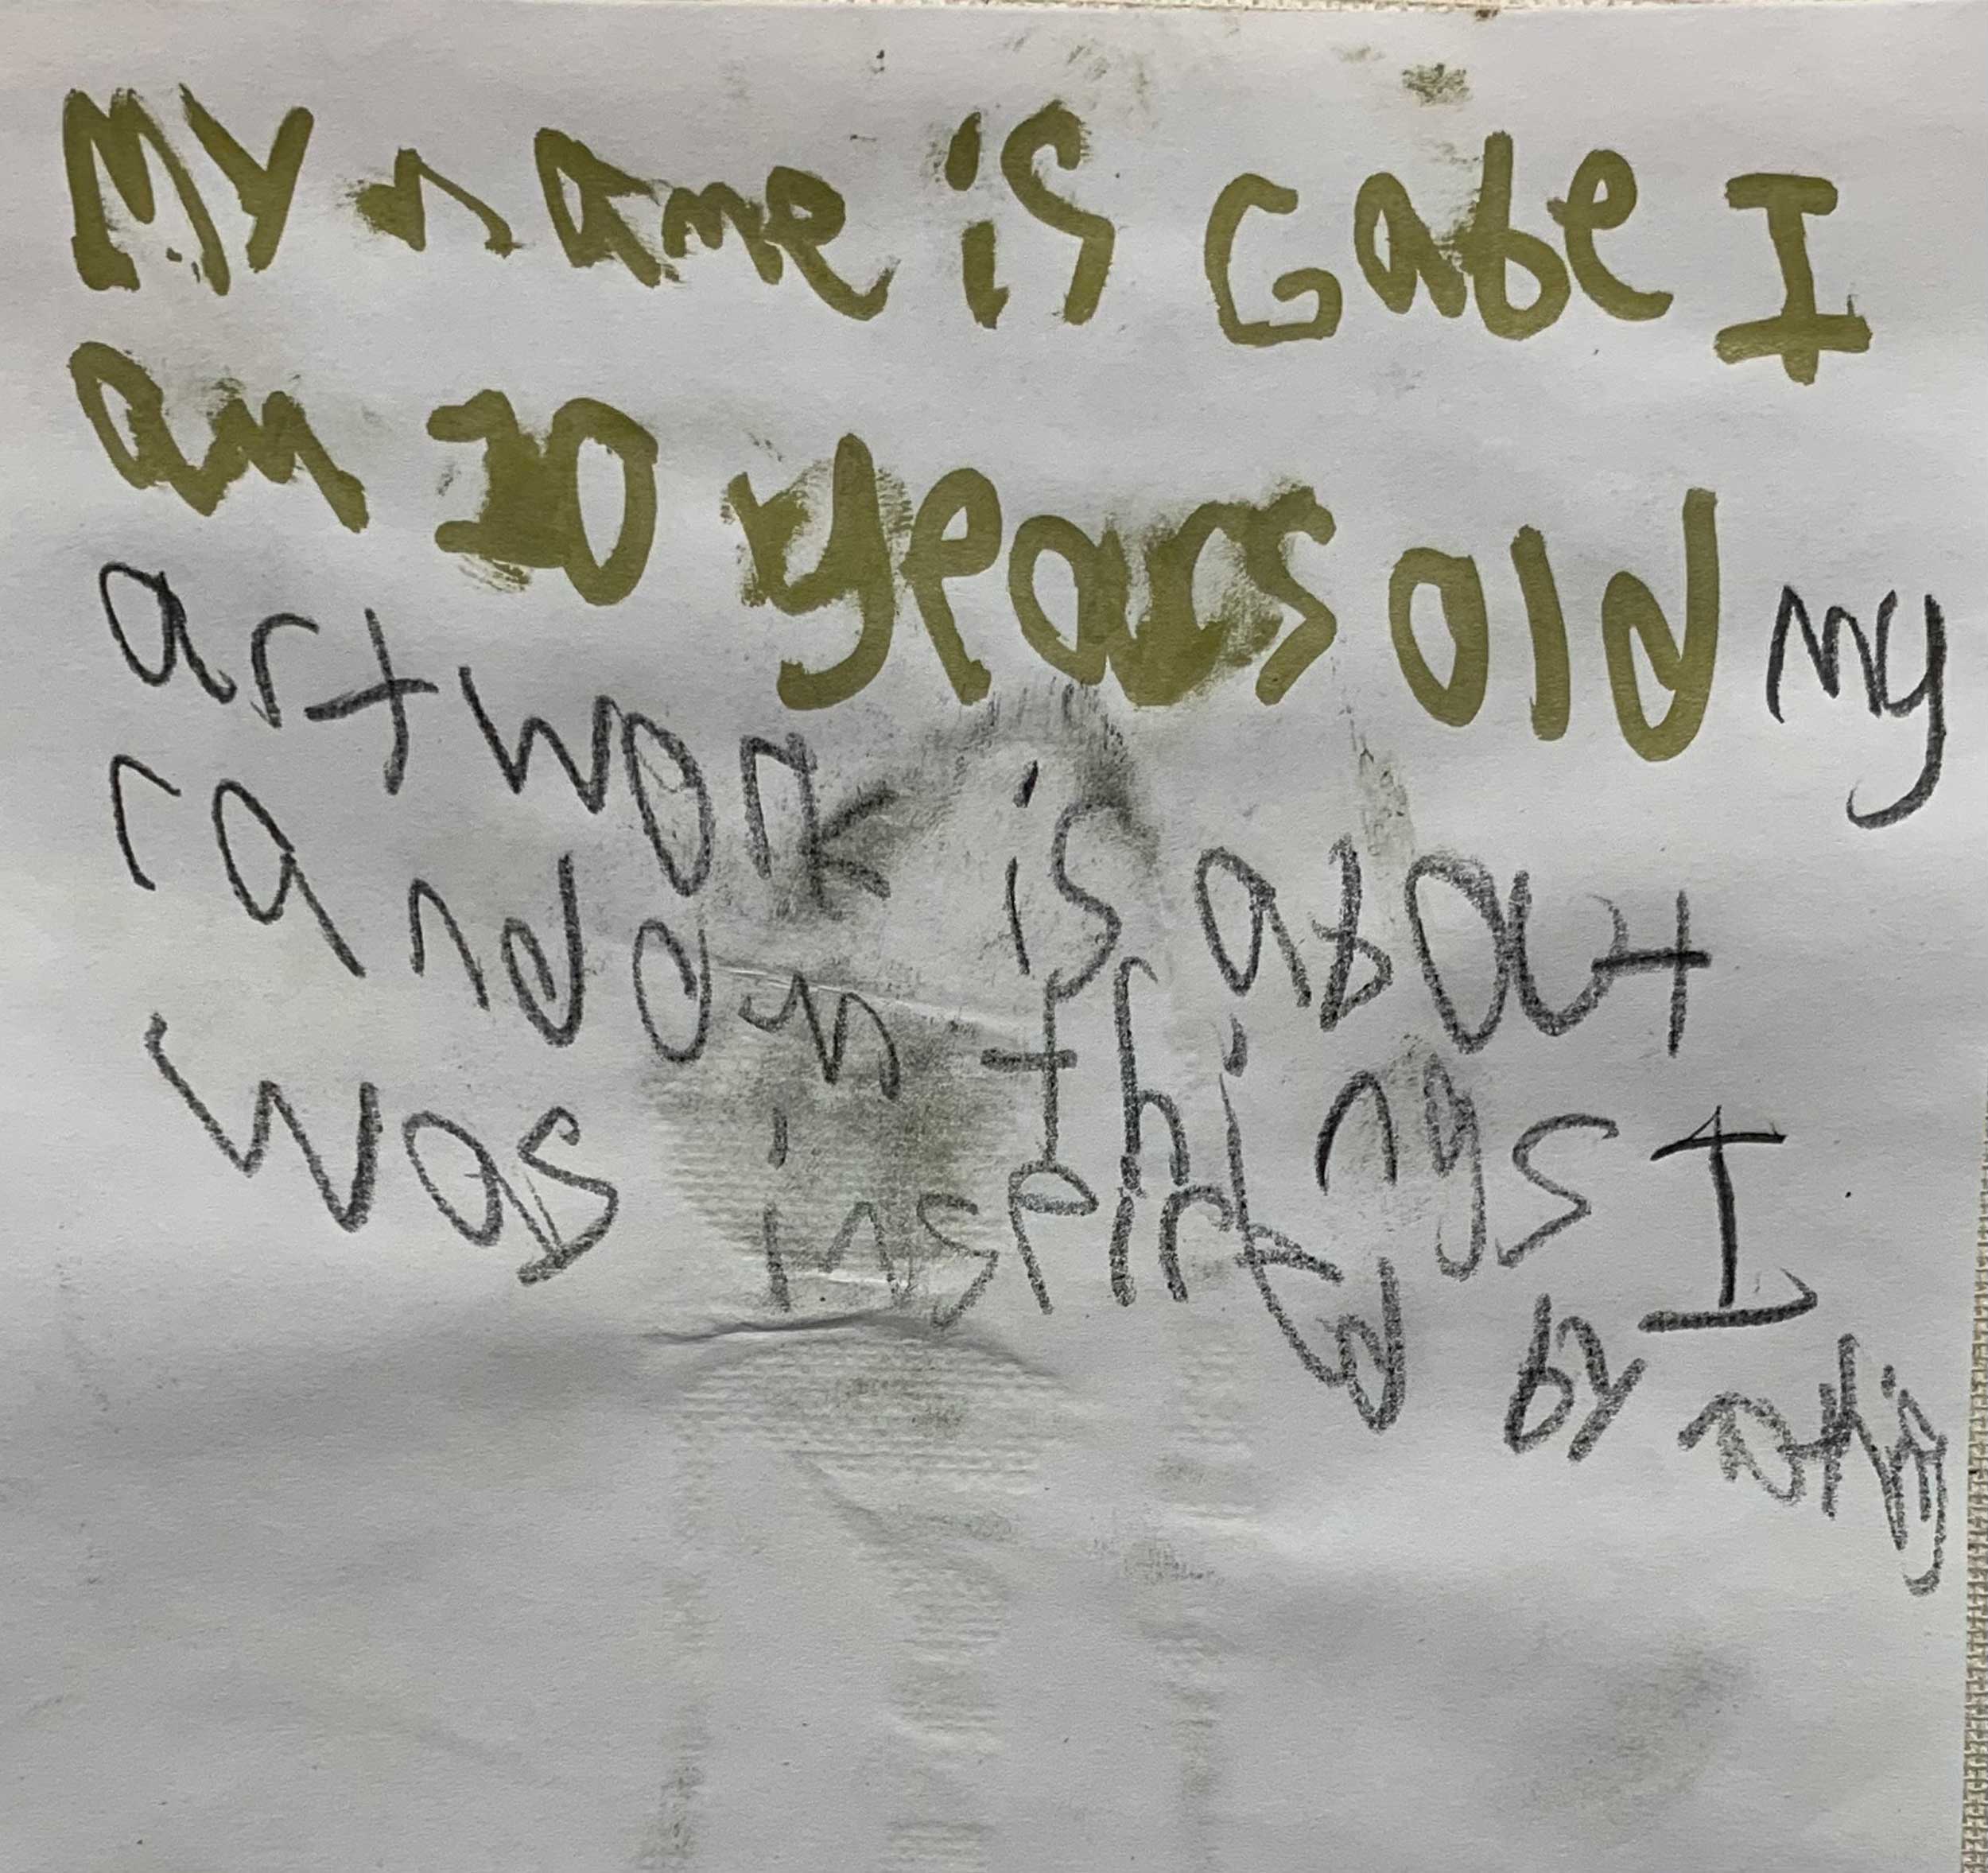 My name is Gabe I
am 10 years old my
artwork is about
random things I
was inspired by